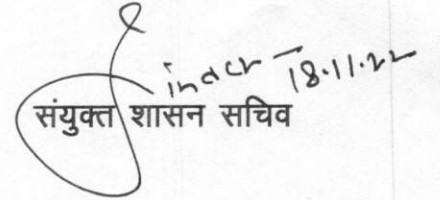 18.11.22
संयुक्त शासन सचिव